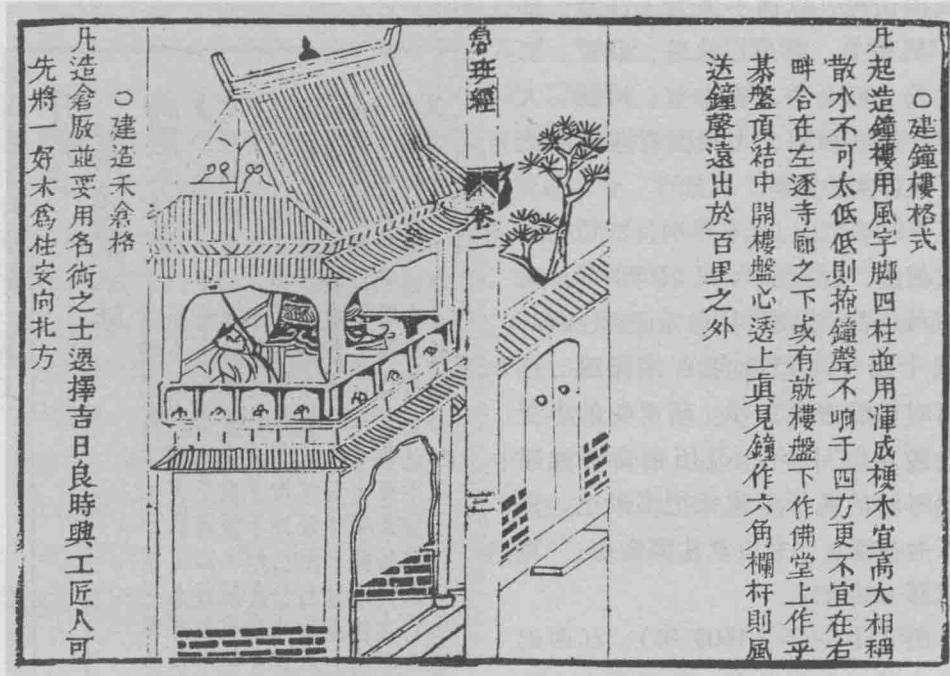 ○建鐘樓格式
凡起造鐘樓用風字脚四柱並用渾成梗木宜高大相稱
散水不可太低低則掩鐘聲不响于四方更不宜在右
畔合在左逐寺廊之下或有就樓盤下作佛堂上作平
棊盤頂結中開樓盤心透上直見鐘作六角欄杆則風
送鐘聲遠出於百里之外
魯班經
卷二
三
○建造禾倉格
凡造倉厫並要用名術之士選擇吉日良時興工匠人可
先將一好木爲柱安向北方